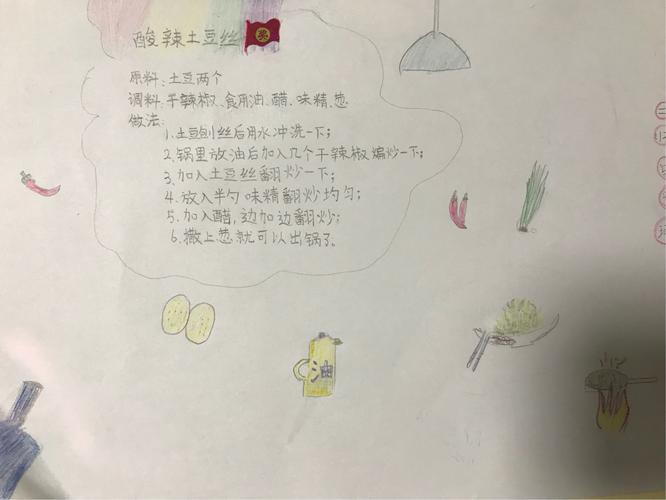 酸辣土豆丝
原料:土豆两个
调料:干辣椒、食用油、醋、味精、葱
做法:
1.土豆刨丝后用水冲洗一下;
2.锅里放油后加入几个干辣椒煸炒一下;
3.加入土豆丝翻炒一下;
4.放入半勺味精翻炒均匀;
5.加入醋,边加边翻炒;
6.撒上葱就可以出锅了。
油